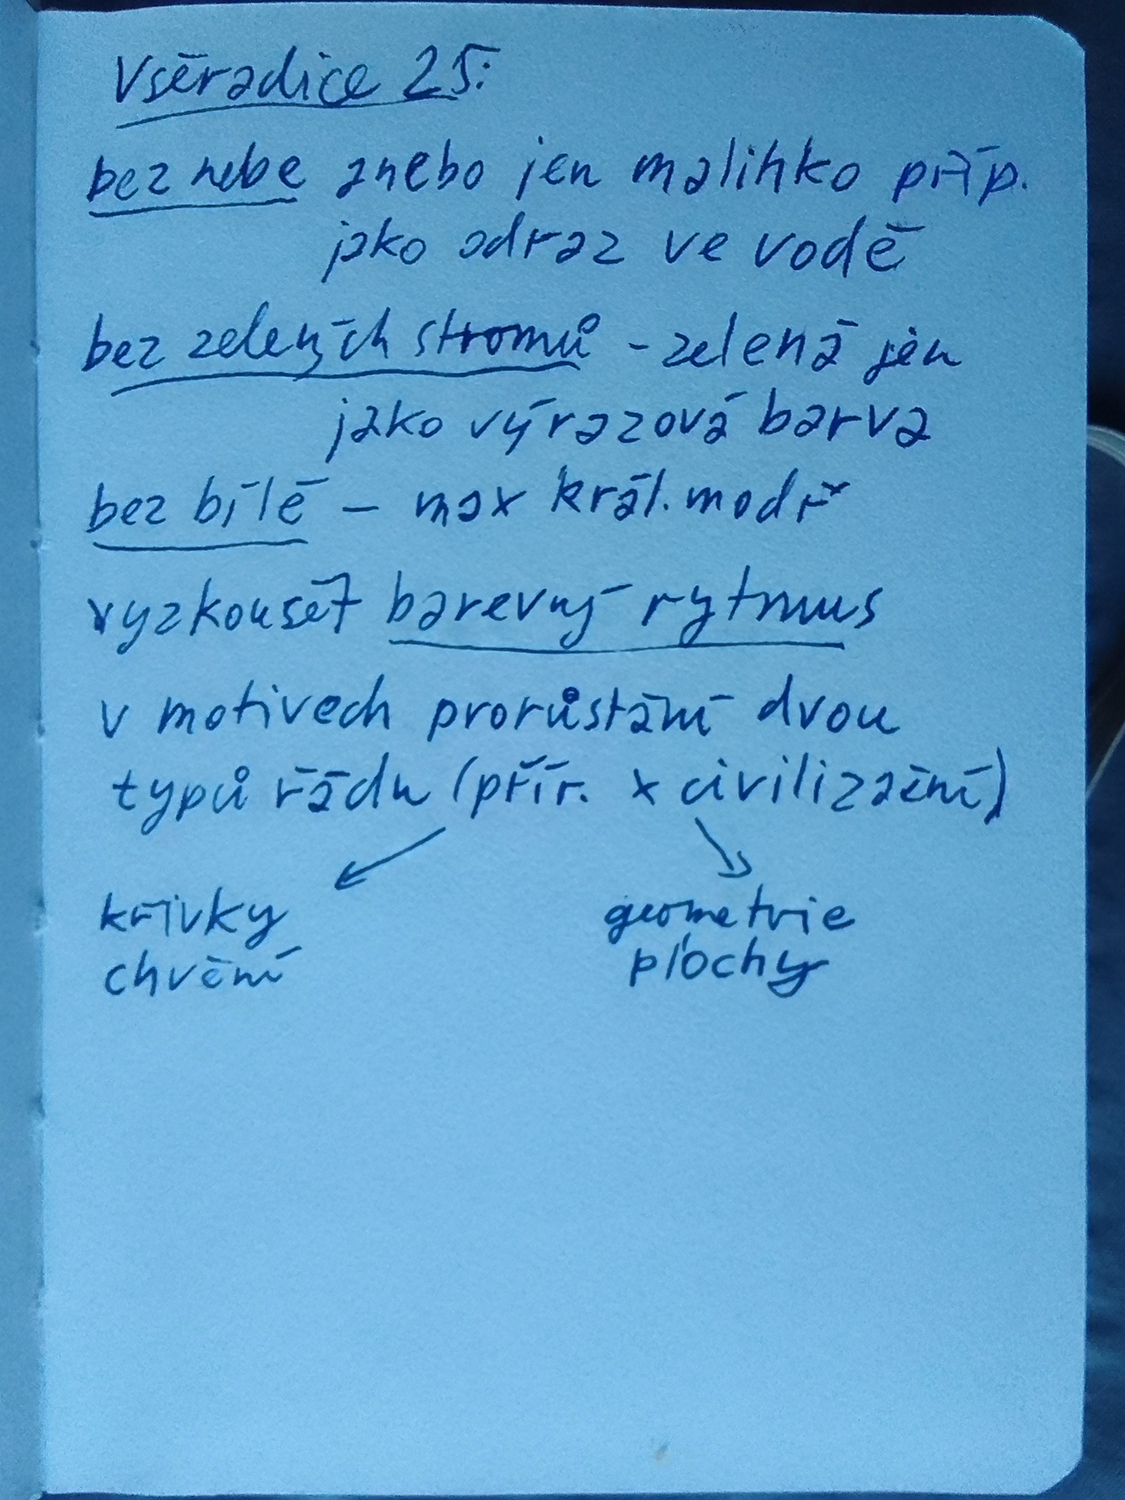 Všeradice 25:
bez nebe anebo jen malinko příp.
jako odraz ve vodě
bez zelených stromů - zelená jen
jako výrazová barva
bez bílé - max král. modř
vyzkoušet barevný rytmus
v motivech prorůstání dvou
typů řádu (přír. x civilizační)
křivky geometrie
chvění plochy